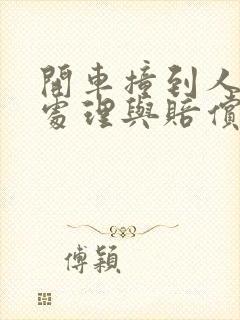 開車撞到人
處理與賠償
傅穎